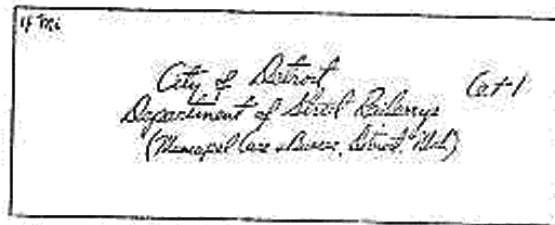 4 Mi
City of Detroit
Cat 1
Department of Street Railways
(Municipal Cars & Buses, Detroit, Mich)